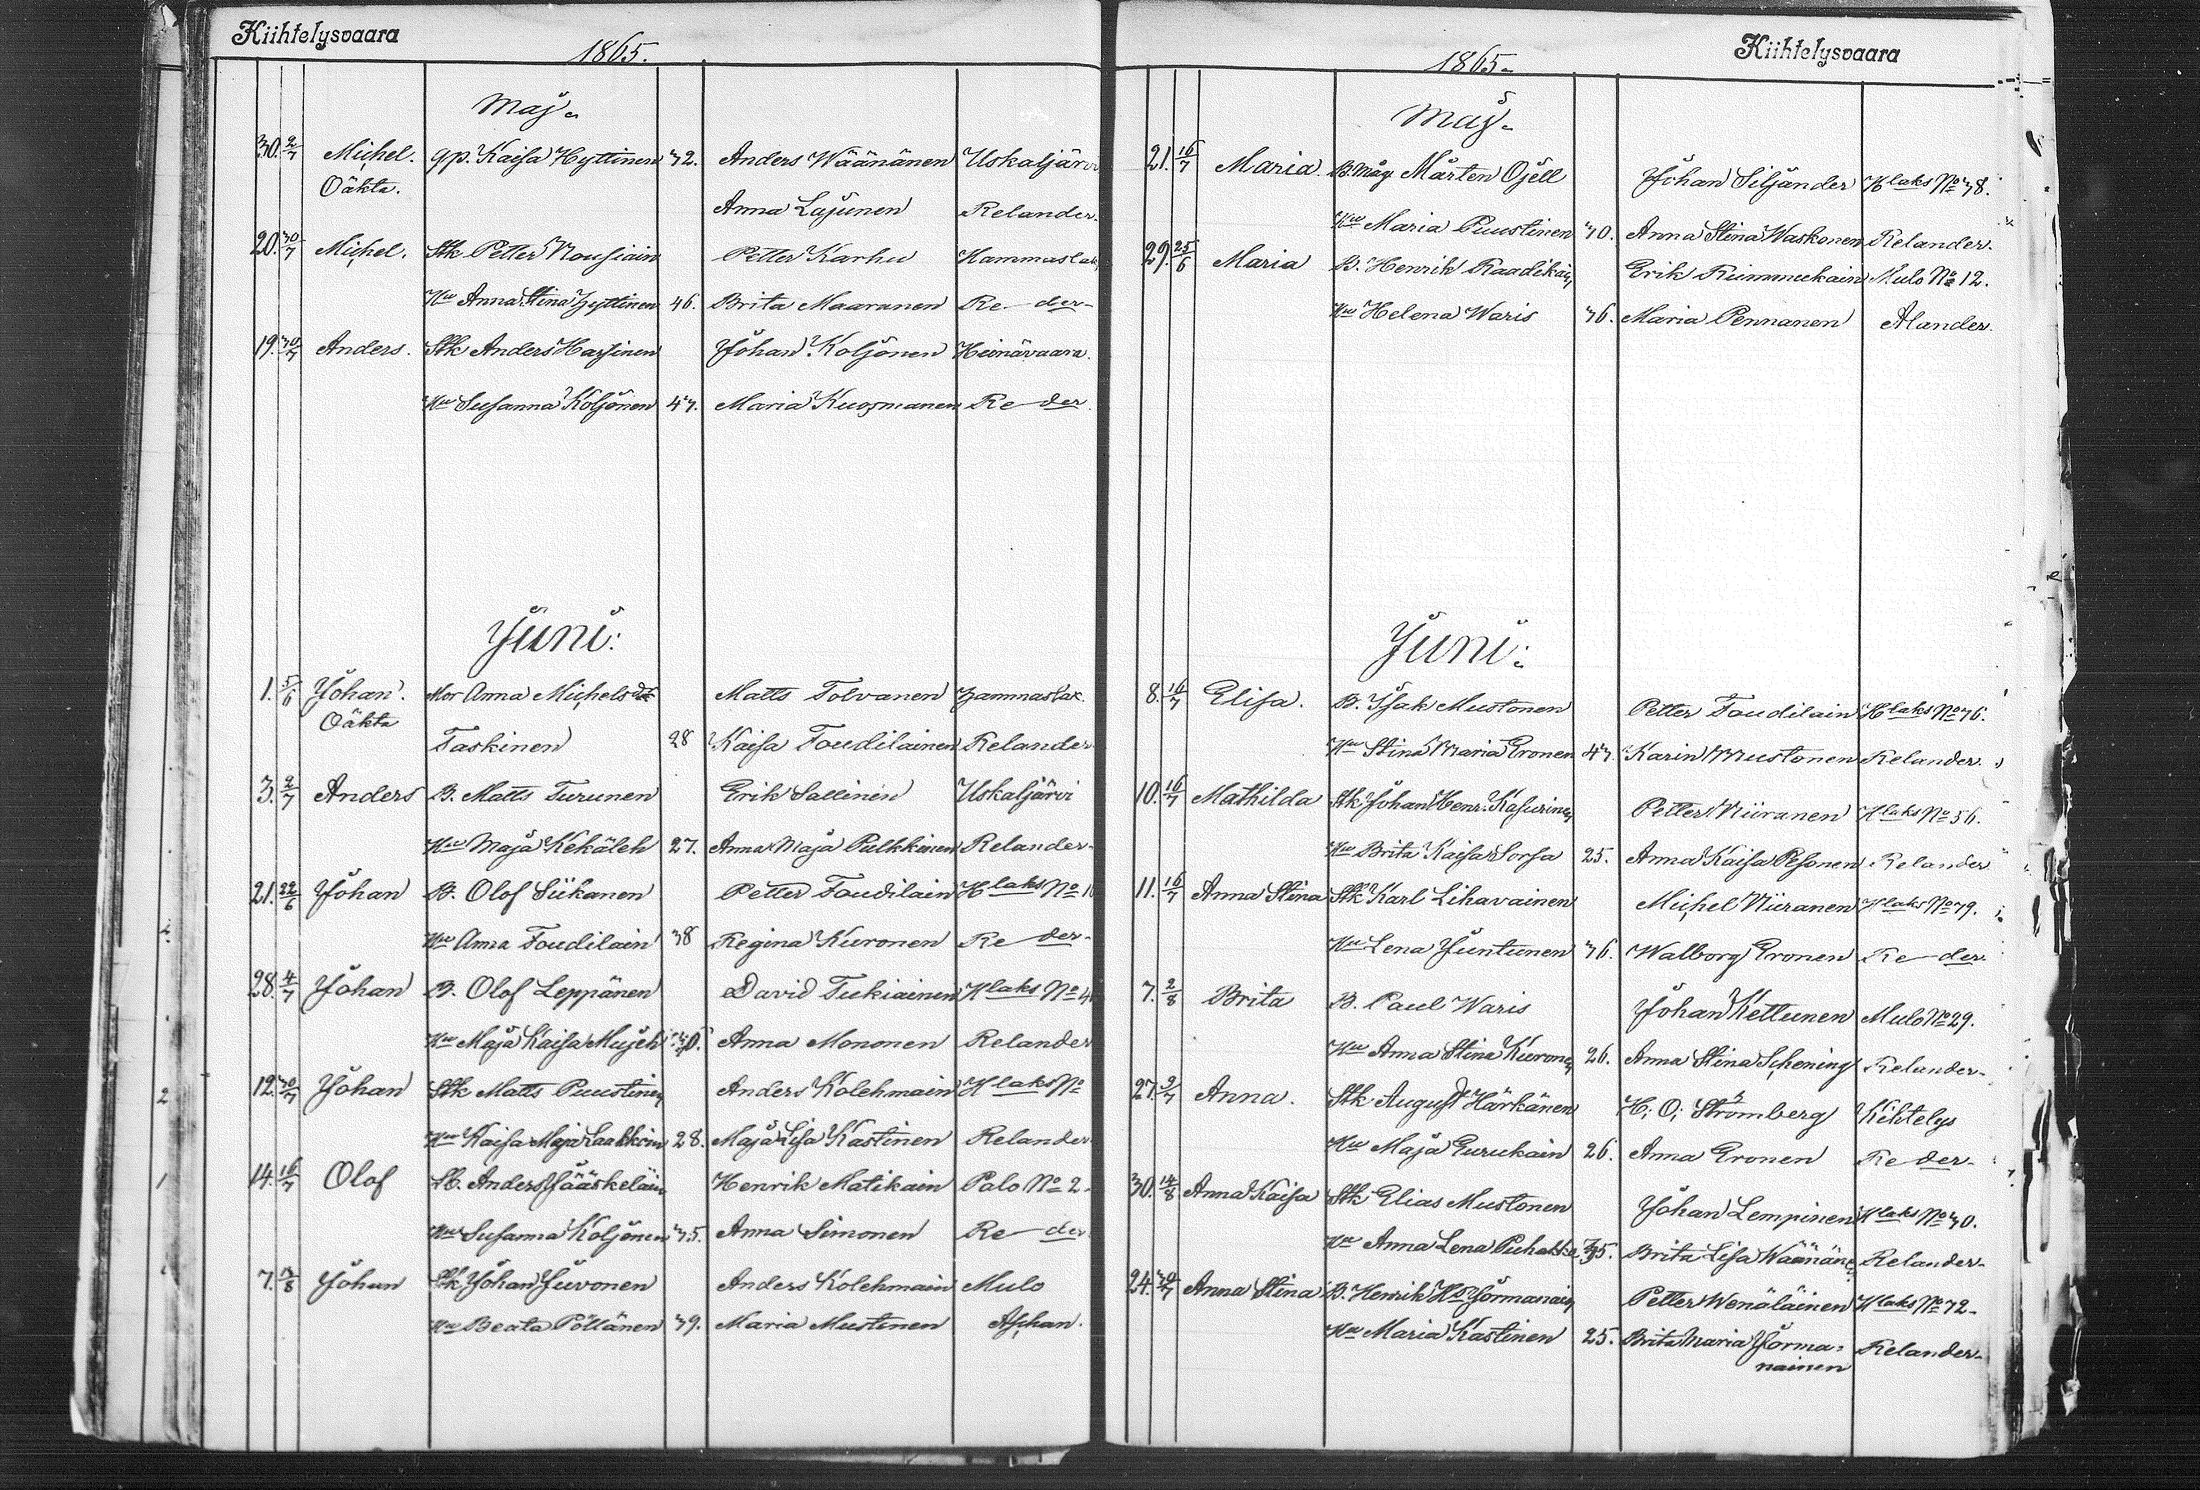 Kiihtelysvaara
1865.
Maj.
30. 2/7 Michel. gp. Kaisa Hyttinen 32. Anders Wäänänen Uskaljärvi
Oäkta.
Anna Lajunen Relander.
20. 30/7 Michel. Stk Petter Nousiain Petter Karhu Hammaslax
Hu Anna Stina Hyttinen 46. Brita Maaranen Re der
19. 30/7 Anders. Stk Anders Harsinen Johan Koljonen Heinävaara.
Hu Susanna Koljonen 43. Maria Kuosmanen Re der.
Juni:
1. 5/6 Johan. Mor Anna Michelsdt Matts Tolvanen Hammaslax.
Oäkta
Taskinen 28 Kaisa Toudilainen Relander
3. 2/7 Anders B. Matts Turunen Erik Sallinen Uskaljärvi
Hu Maja Kekäleh 27. Anna Maja Pulkkinen Relander
21. 22/6 Johan B. Olof Siikanen Petter Toudilain Hlaks No
Hu Anna Toudilain 38 Regina Kuronen Re der
28. 4/7 Johan B. Olof Leppänen David Tukiainen Hlaks No 4
Hu Maja Kaisa Mujeh 30. Anna Mononen Relander
12. 30/7 Johan Stk Matts Puustinen Anders Kolehmain Hlaks No
Hu Kaisa Maja Laakkoin 28. Maja Lisa Kastinen Relander
14. 16/7 Olof Lb. Anders Jääskeläin Henrik Matikain Palo No 2
Hu Susanna Koljonen 35. Anna Simonen Re der
7. 13/8 Johan Stk Johan Juvonen Anders Kolehmain Mulo
Hu Beata Pöllänen 39. Maria Mustonen Aschan.
2
1
Kiihtelysvaara
1865.
Maj.
21. 16/7 Maria. B. Måg Mårten Ojell Johan Siljander Hlaks No 38.
Hu Maria Puustinen 30. Anna Stina Waskonen Relander.
29. 25/6 Maria B. Henrik Raadikain Erik Rummukain Mulo No 12.
Hu Helena Waris 36. Maria Pennanen Alander
Juni:
8. 16/7 Elisa. B. Isak Mustonen Petter Toudilain Hlaks No 36.
Hu Stina Maria Eronen 43. Karin Mustonen Relander
10. 16/7 Mathilda Stk Johan Henr. Kasurinen Petter Niiranen Hlaks No 56.
Hu Brita Kaisa Sorsa 25. Anna Kaisa Pesonen Relander
11. 16/7 Anna Stina Stk Karl Lihavainen Michel Niiranen Hlaks No 79.
Hu Lena Juntunen 36. Walborg Eronen Re der
7. 2/8 Brita B. Paul Waris Johan Kettunen Mulo No 29.
Hu Anna Stina Kuronen 26. Anna Stina Schening Relander
27. 9/7 Anna. Stk August Härkänen H. O. Strömberg Kihtelys
Hu Maja Gurukain 26. Anna Eronen Re der
30. 14/8 Anna Kaisa Stk Elias Mustonen Johan Lempinen Hlaks No 30.
Hu Anna Lena Puhakka 35. Brita Lisa Wäänänen Relander
24. 30/7 Anna Stina B. Henrik Hs Jormanain Petter Wenäläinen Hlaks No 72
Hu Maria Kastinen 25. Brita Maria Jorma= Relander
nainen